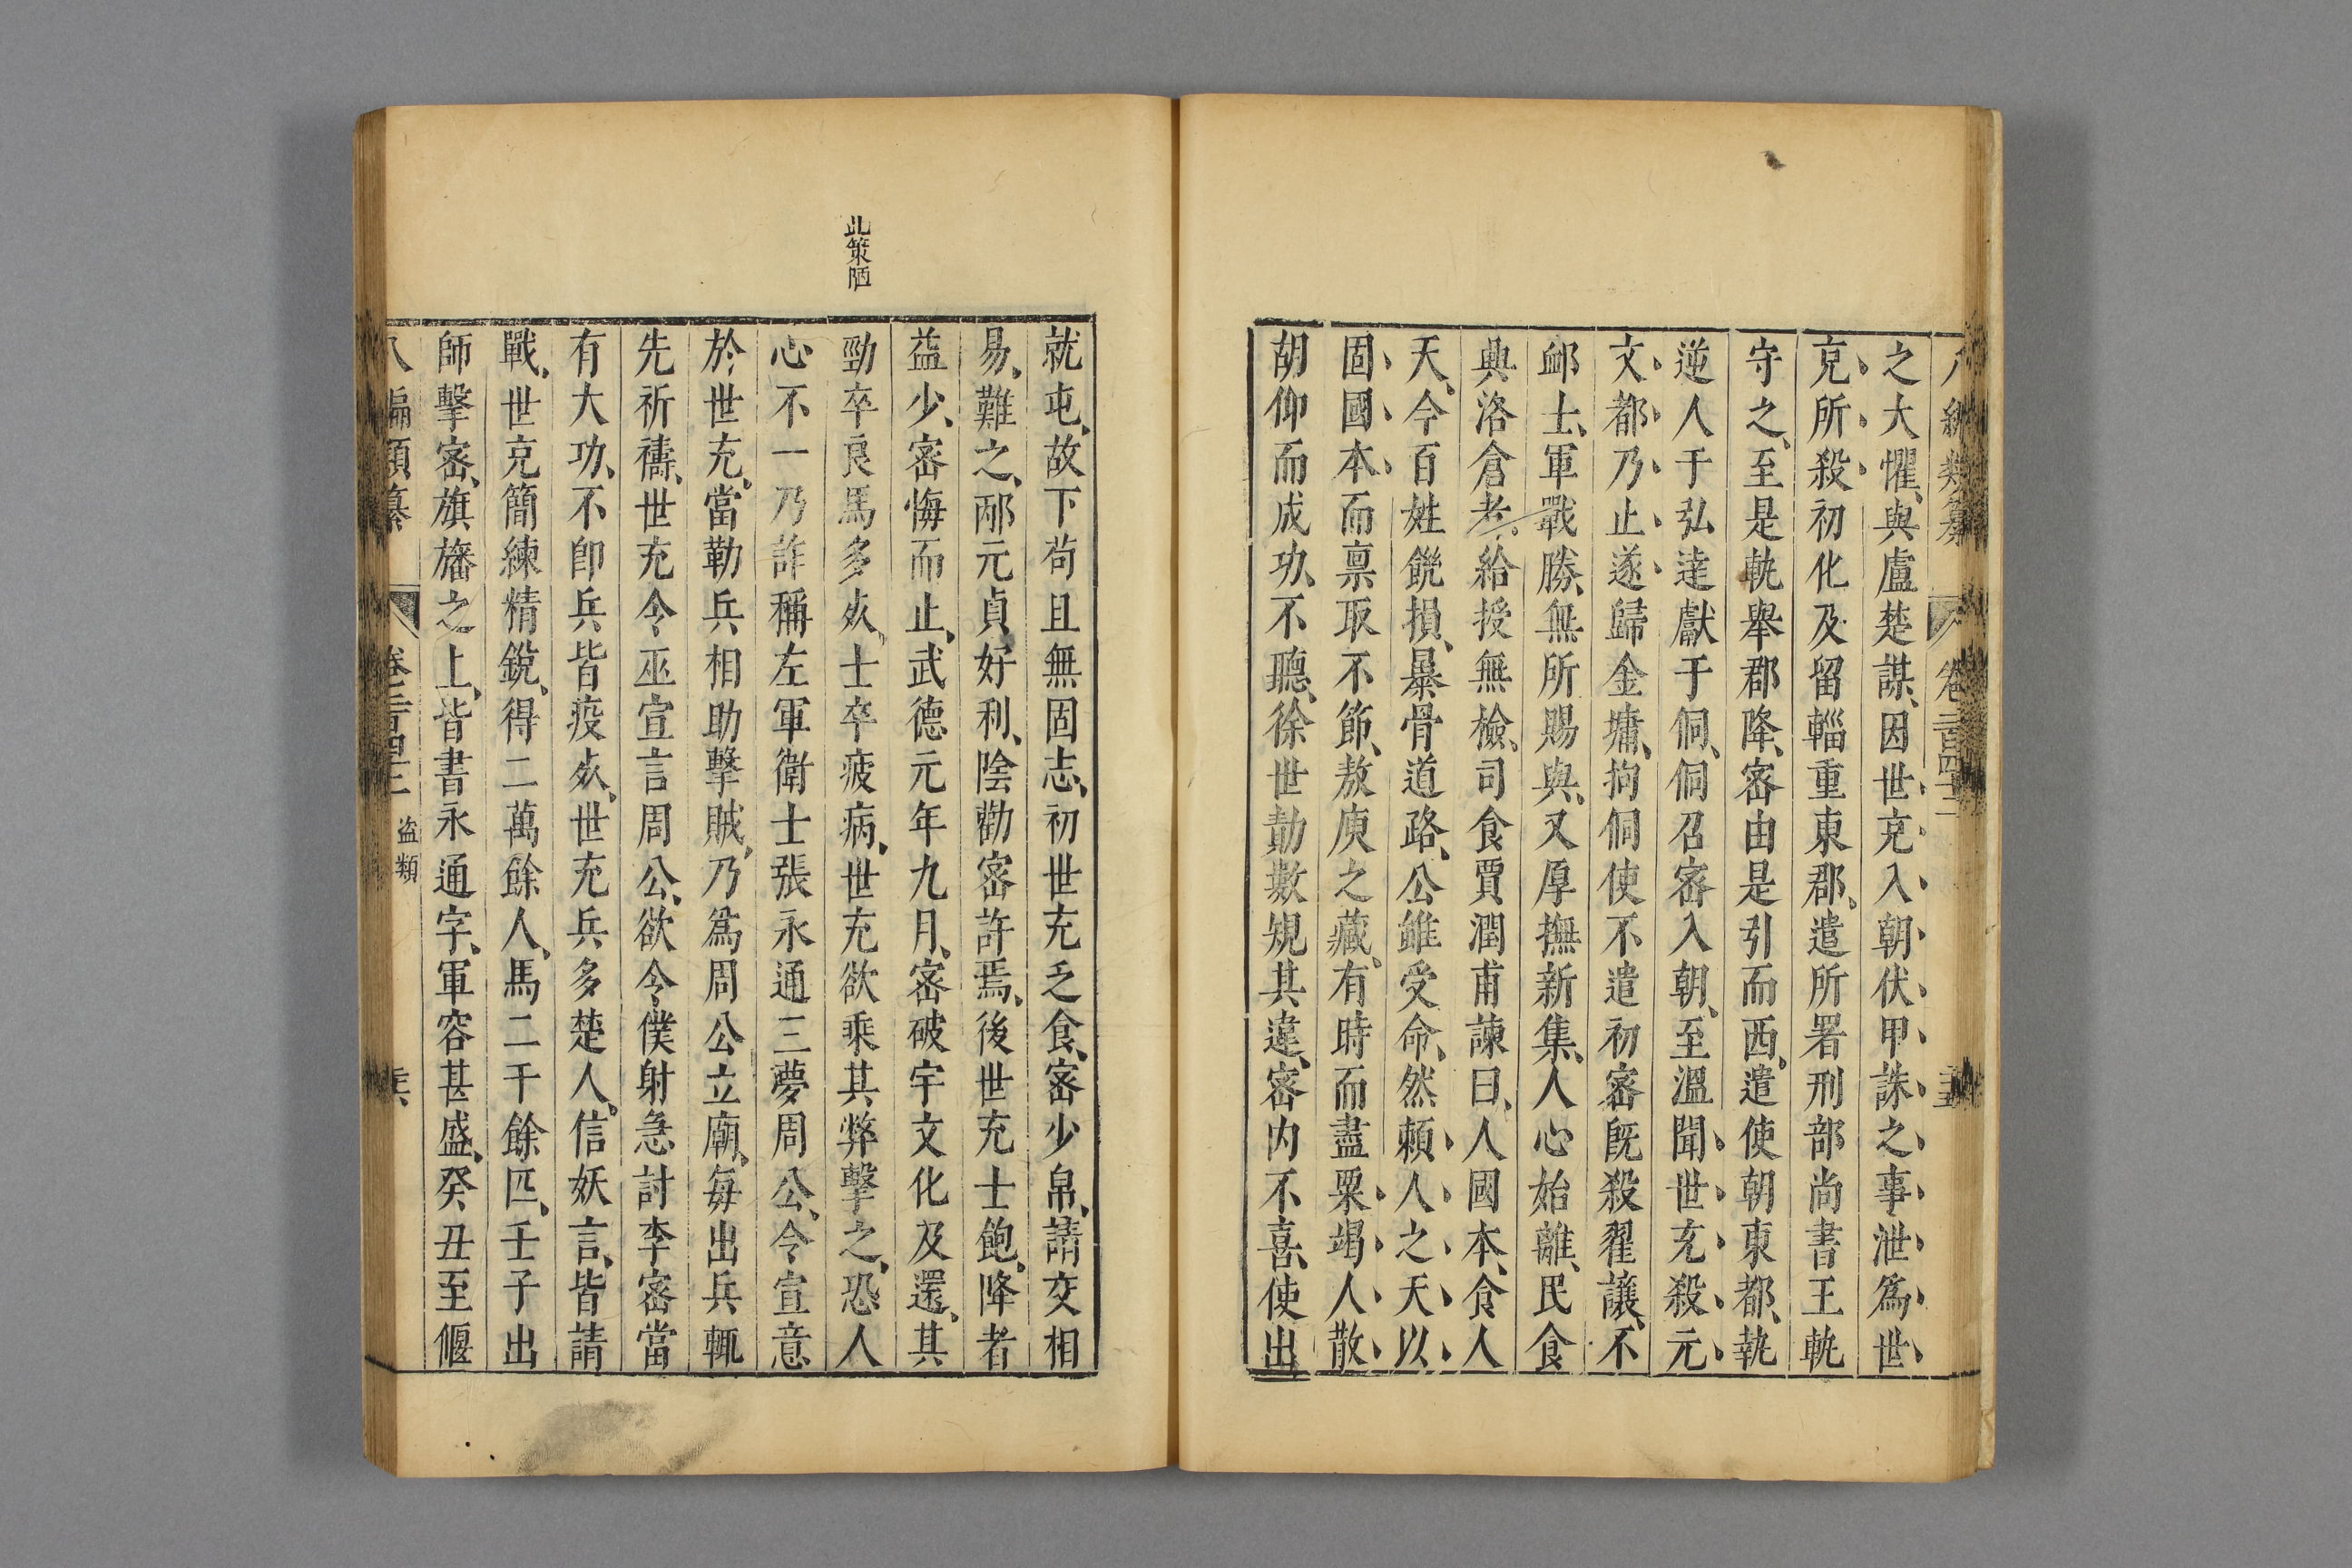 之大懼、與盧楚謀、因世充入朝伏甲誅之事泄爲世
充所殺初化及留輜重東郡、遣所署刑部尚書王軌
守之、至是軌舉郡降、密由是引而西、遣使朝東都、執
逆人于弘達獻于侗、侗召密入朝、至溫聞世充殺元
文都乃止遂歸金墉、拘侗使不遣初密旣殺翟讓、不
䘏士、軍戰勝、無所賜與、又厚撫新集、人心始離、民食
興洛倉者、給授無檢、司食賈潤甫諫曰、人國本、食人
天、今百姓饑損、暴骨道路、公雖受命、然賴人之天以
固國本而禀取不節、敖庾之藏、有時而盡粟竭人散
胡仰而成功、不聽、徐世勣數規其違、密内不喜、使出
就屯、故下苟且無固志、初世充乏食、密少帛、請交相
易、難之、邴元貞好利、陰勸密許焉、後世充士飽、降者
益少、密悔而止、武德元年九月、密破宇文化及還、其
此策陋
勁卒良馬多㱙、士卒疲病、世充欲乘其弊擊之、恐人
心不一乃詐稱左軍衛士張永通三夢周公、令宣意
於世充、當勒兵相助擊賊、乃爲周公立廟、每出兵輒
先祈禱、世充令巫宣言周公、欲令僕射急討李密當
有大功、不卽兵皆疫㱙、世充兵多楚人、信妖言、皆請
戰、世充簡練精銳、得二萬餘人、馬二千餘匹、壬子出
師擊密、旗旛之上、皆書永通字、軍容甚盛、癸丑至偃
八編類纂 盜類